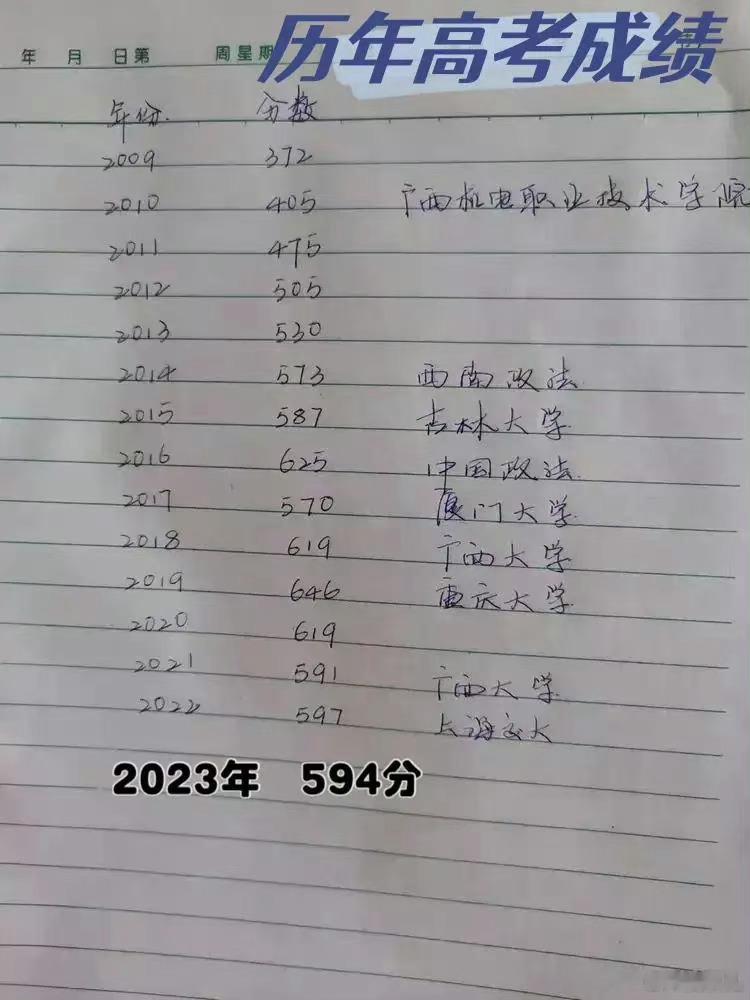 历年高考成绩
年 月 日第 周星期
年份 分数
2009 372
2010 405 广西机电职业技术学院
2011 475
2012 505
2013 530
2014 573 西南政法
2015 587 吉林大学
2016 625 中国政法
2017 570 厦门大学
2018 619 广西大学
2019 646 重庆大学
2020 619
2021 591 广西大学
2022 597 上海交大
2023年 594分